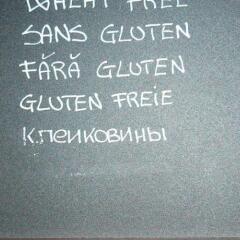 WHEAT FREE
SANS GLUTEN
FĂRĂ GLUTEN
GLUTEN FREIE
К.ЛЕЙКОВИНЫ